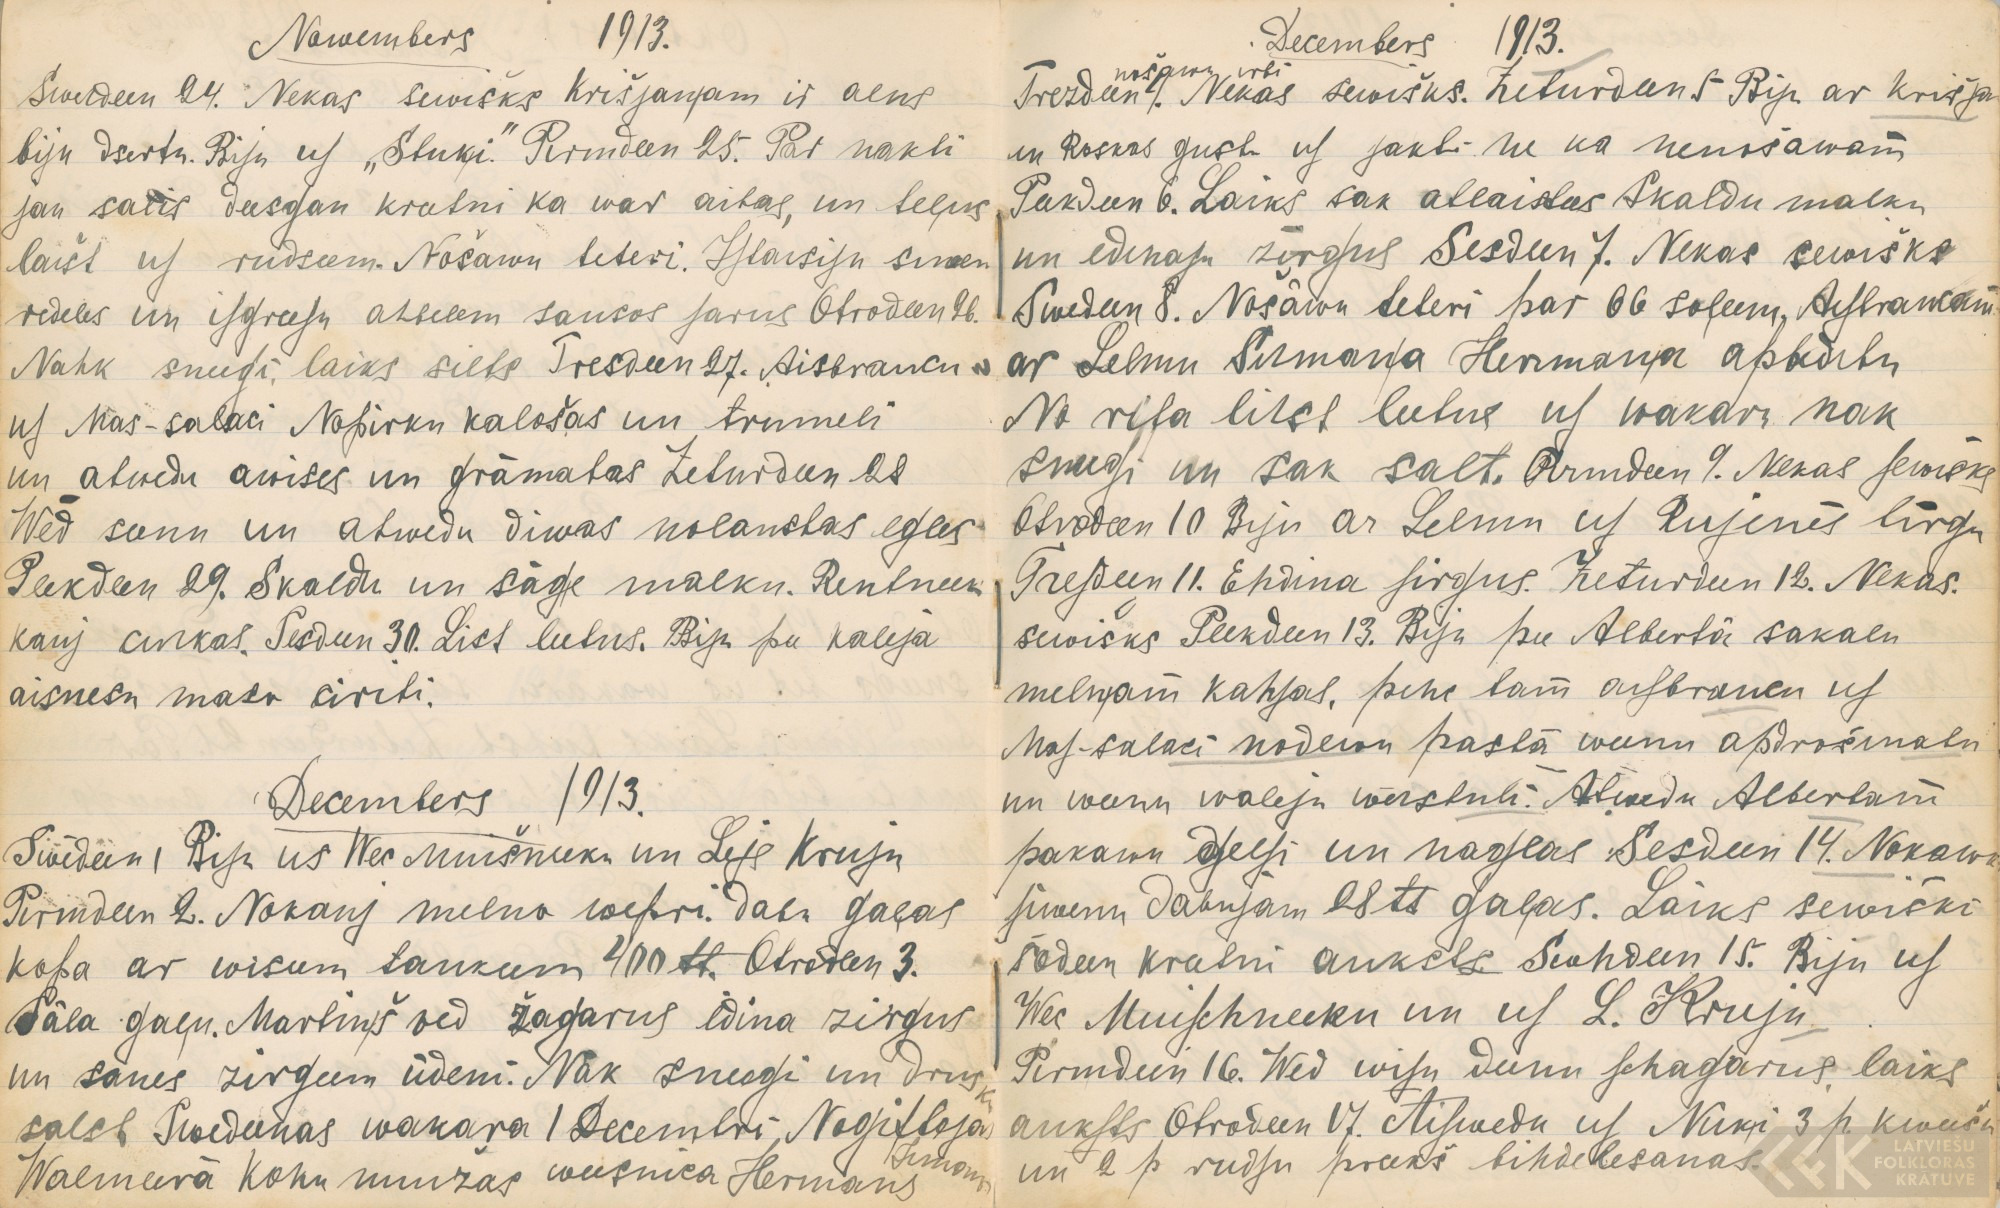 Nowembers 1913.
Swetdeen 24. Nekas sewišks Krišjanam is aens
biju dsertu. Biju uſ „Stuķi." Pirmdeen 25. Par nakti
jau salis deesgan krutni ka war aitas, un teļus
laist uſ rudseem. Nošawu teteri. Iſtaisiju
redeles un iſgreesu atseem sausos ſarus Otrodeen 26.
Nahk sneegi, laiks silts Tresdeen 27. Aisbraucu
uſ Mas-salaci Nopirku kalošas un trumeli
un atwedu awises un grāmatas Zeturdeen 28
Wed seenu un atwedu diwas nolaustas egles
Peekdeen 29. Skaldu un sāģe malku. Rentneek
kauj cukas. Sesdeen 30. List leetus. Biju pee kaleja
aisnesu maso siriti.
Decembers 1913.
Swēdeen 1 Biju us Wec Muišneeku un Lejs Kruju
Pirmdeen 2. Nokauj melno wepri. Dabu gaļas
kopa ar wisum taukum 400 tt. Otrodeen 3.
Sāla gaļu. Martiņš ved žagarus ēdina zirgus
un sanes zirgeem ūdeni. Nāk sneegi un drusku
salst Swedeenas wakara 1 Decembri Nogiftejas
Walmeerā Kohu muižas weesnica Hermans
Decembers 1913.
nošawu irbi
Trezdeen 4. Nekas sewišks. Zeturdeen 5 Biju ar krišja
un Roskas gustu uſ jakti ne ka nenošawam
Peekdeen 6. Laiks sak atlaistees Skaldu malku
un edinaju zirgus Sesdeen 7. Nekas sewišks
Swedeen 8. Nošāwu teteri par 66 soļeem. Aiſbraucam
ar Lelmu Hermaņa apbedutu
No rīta līst leetus uſ wakaru nak
sneegi un sak salt. Pirmdeen 9. Nekas ſewišks
Otrodeen 10 Biju ar Lelmu uſ Rujenes tirgu
Treſdeen 11. Ehdina ſirgus. Zeturdeen 12. Nekas.
sewišks Peekdeen 13. Biju pee Albertā sakaļu
melnjam kahjas, pehc tam aiſbraucu uſ
Maſ-salaci nodewu pastā weenu apdrošinatu
un weenu waļeju wehstuli. Atwedu Albertam
pakawu dſelſi un nagļas Sesdeen 14. Nokawu
ſiwenu Dabujam 28 tt gaļas. Laiks sewišķi
šodeen krutni auksts Swehdeen 15. Biju uſ
Wec Muiſchneeku un uſ L. Kruju
Pirmdeen 16. Wed wiſu deenu ſchagarus, laiks
aukſts Otrodeen 17. Aiſwedu uſ Nuķi 3 p. kweešu
un 2 p rudſu preekš bihdelesanas.
LATVIEŠU
FOLKLORAS
KRATUVE